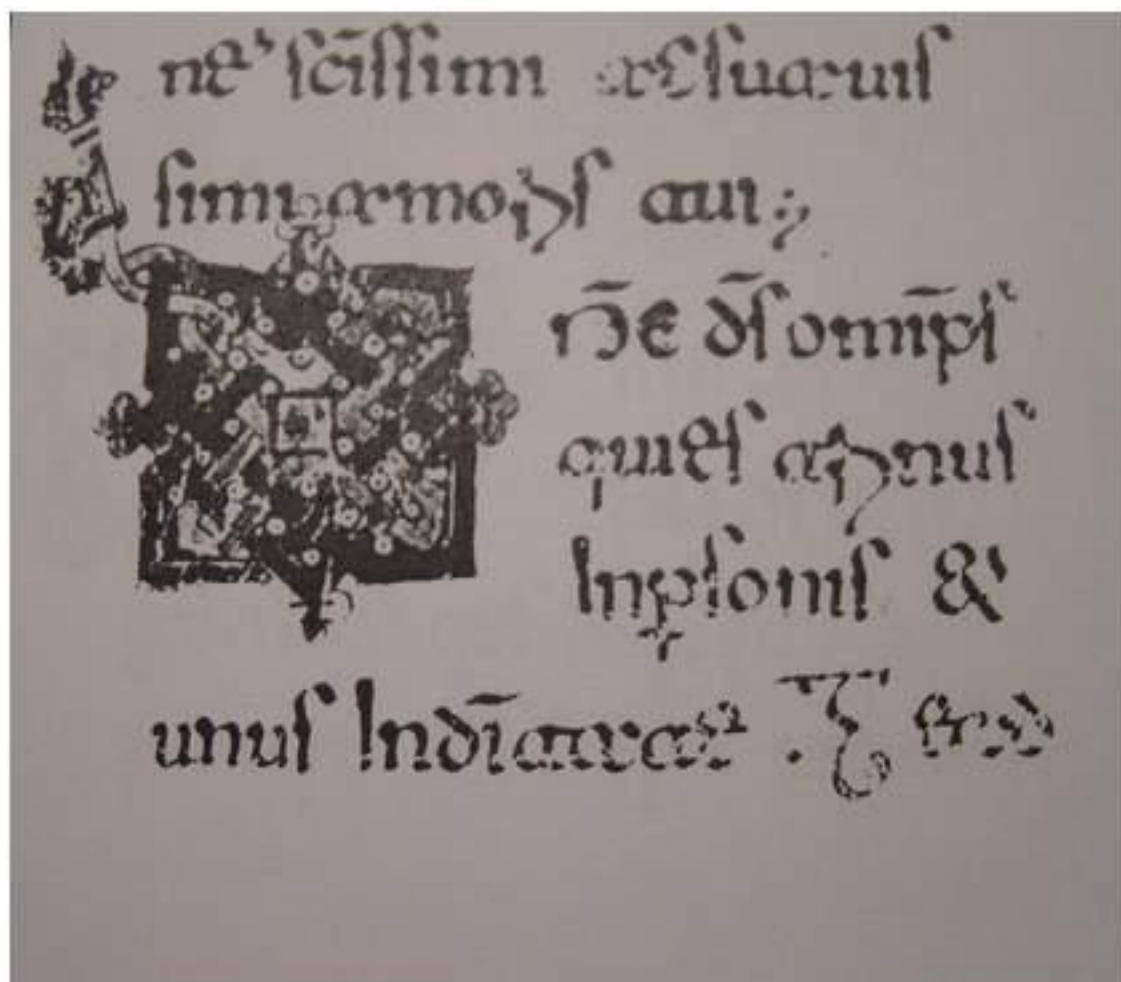 n& sc̄issimi ac suauis
simi amoris tui;
d̄s omnip̄s
qui es trinus
In psonis &
unus In d̄itate